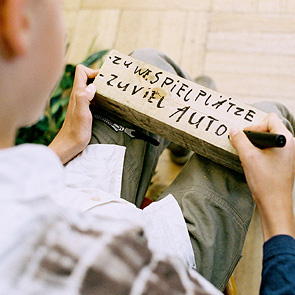 · ZU WE. SPIELPLÄTZE
· ZU VIEL AUTO